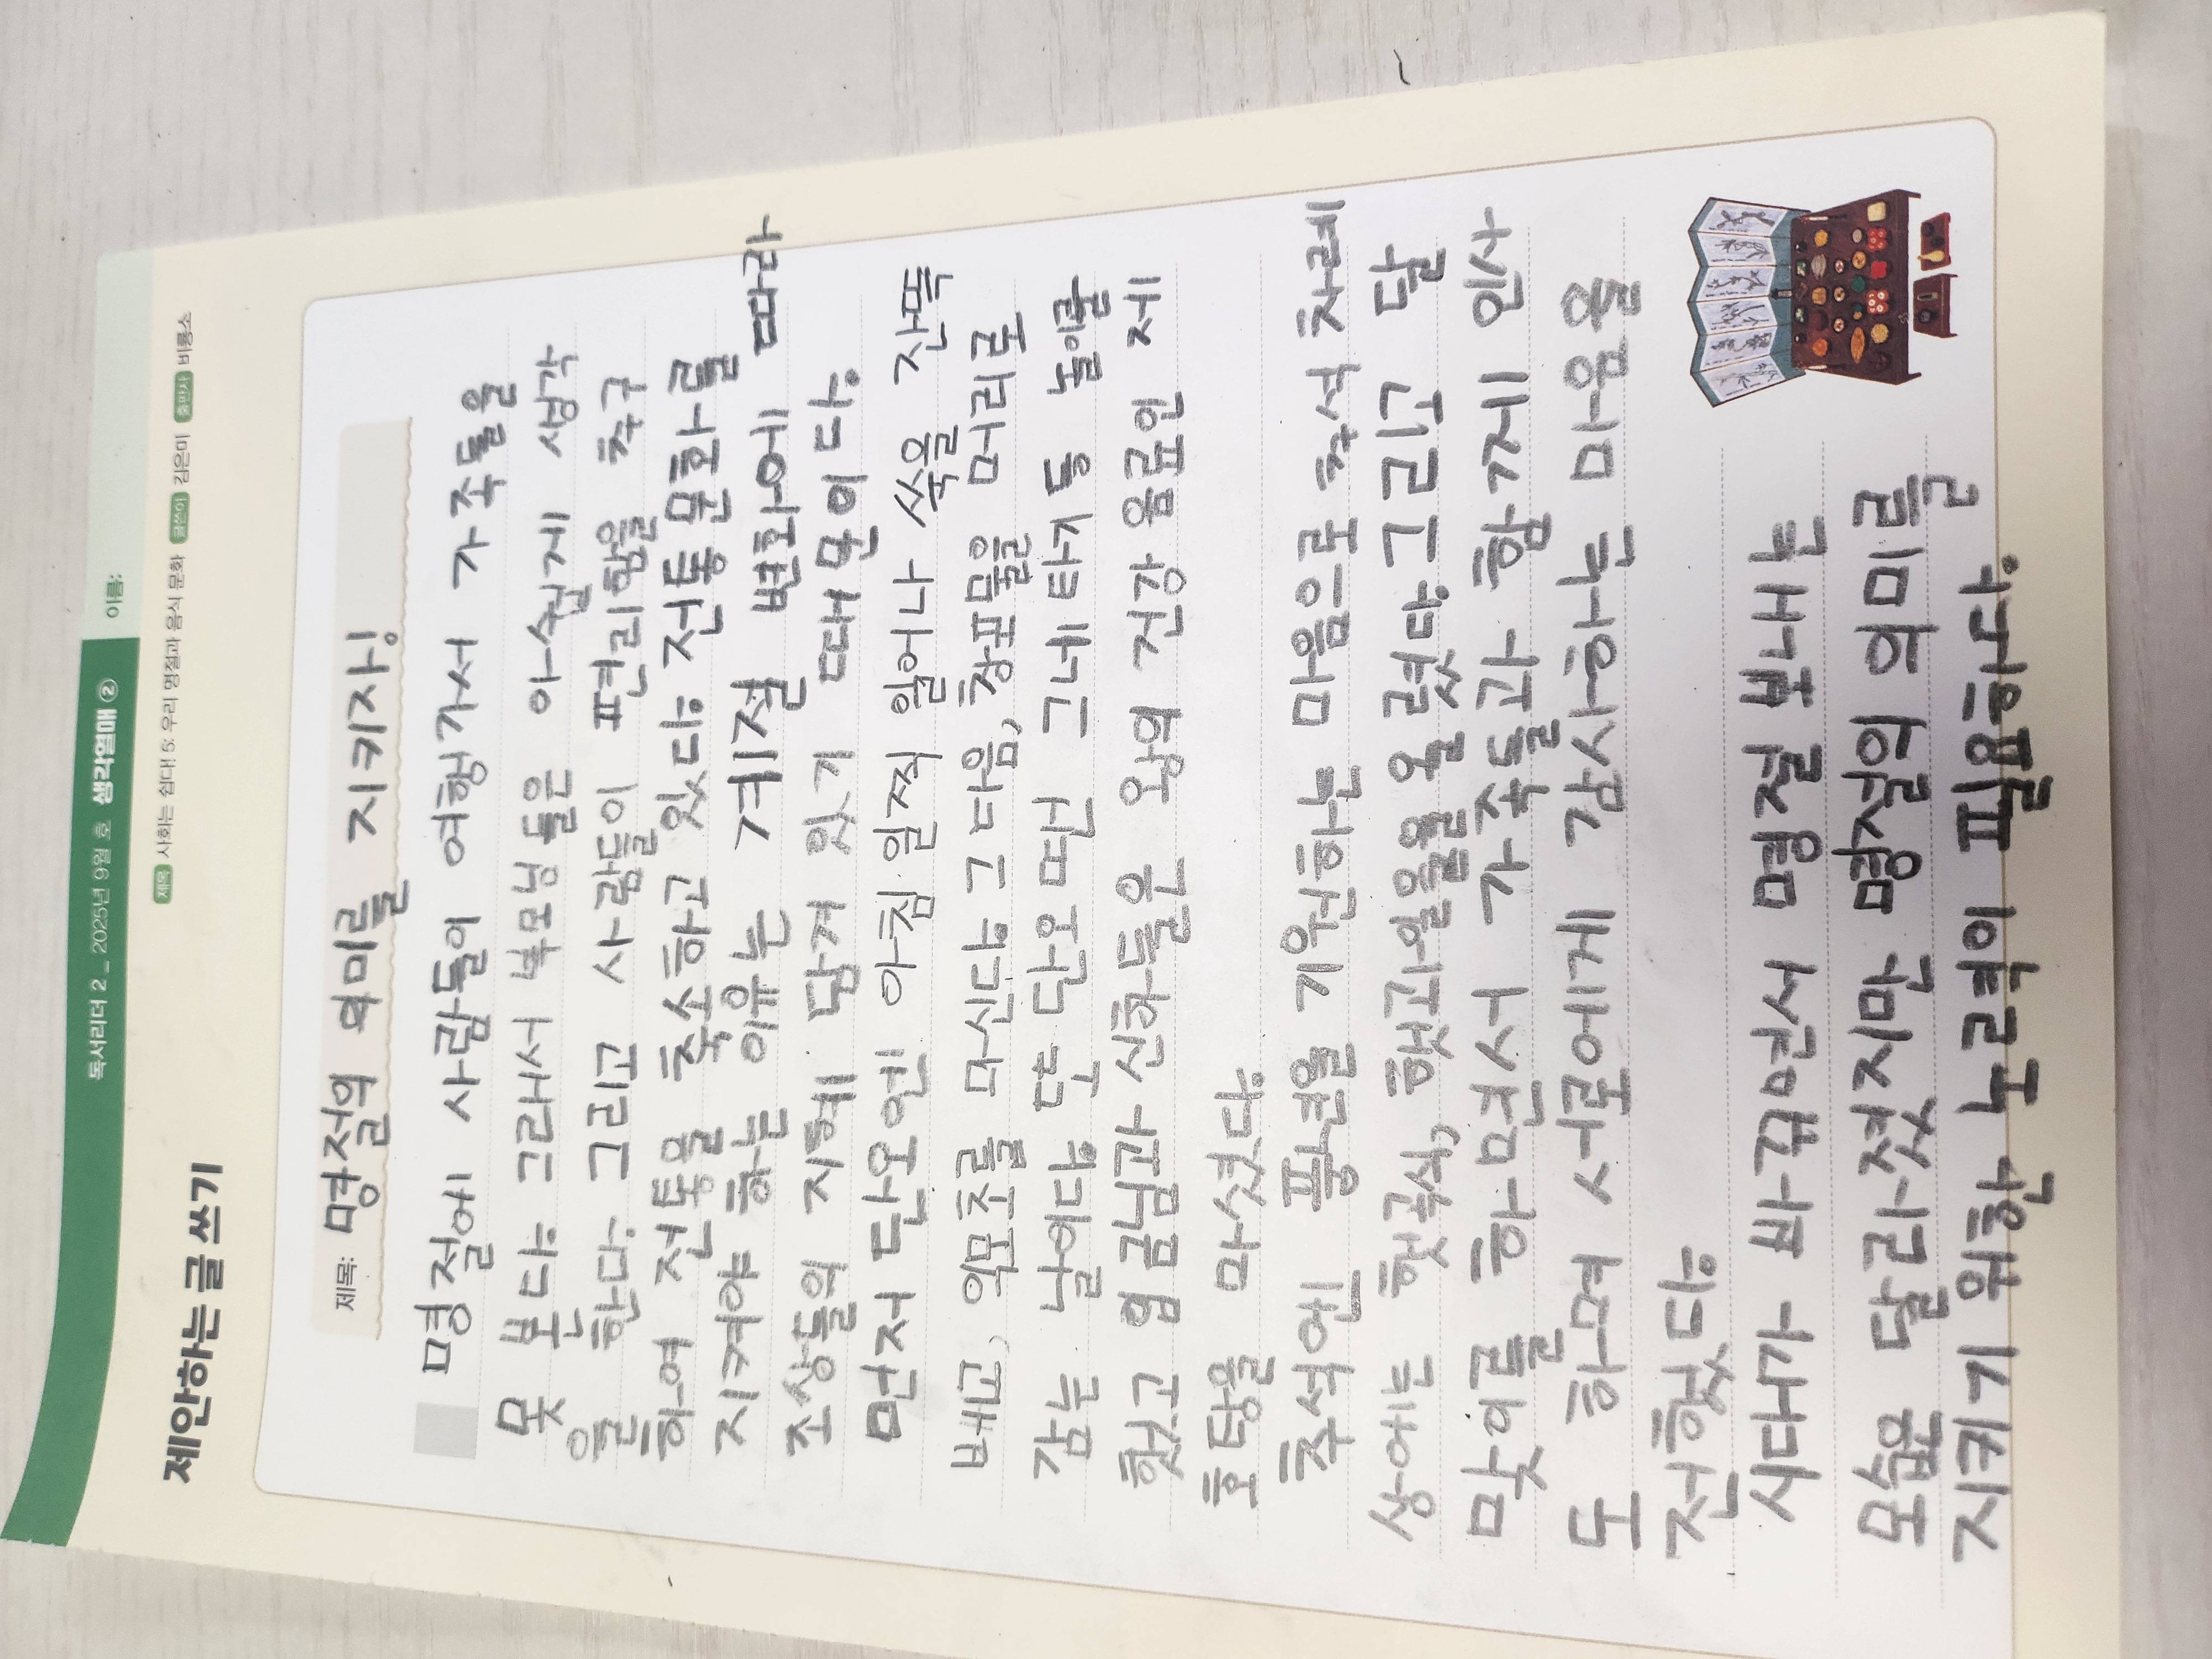 독서리더 2_ 2025년 9월 호 생각열매 ② 이름:
제안하는 글 쓰기
제목 사회는 쉽다! 5: 우리 명절과 음식 문화 글쓴이 김은미 출판사 비룡소
제목: 명절의 의미를 지키자!
명절에 사람들이 여행가서 가족들을
못 본다. 그래서 부모님들은 아쉽게 생각
을 한다. 그리고 사람들이 편리함을 추구
하여 전통을 축소하고 있다. 전통문화를
지켜야 하는 이유는 계절 변화에 따라
조상들의 지혜 담겨 있기 때문이다.
먼저 단오엔 아침 일찍 일어나 쑥을 잔뜩
베고, 익모초를 마신다. 그 다음, 창포물을 머리로
감는 날이다. 또 단오 떄건 그네타기 등 놀이를
했고 임금님과 신하들은 왕의 건강 음료인 제
호탕을 마셨다.
추석엔 풍년을 기원하는 마음으로 추석 차례
상에는 햇곡식, 햇과일을을 올렸다. 그리고 달
맞이를 하면서 가족들과 함께 인사
도 하며 서로에게 감사하는 마음을
전했다.
시대가 바뀌면서 명절 보내는
모습은 달라졌지만 명절의 의미를
지키기 위한 노력이 필요하다.